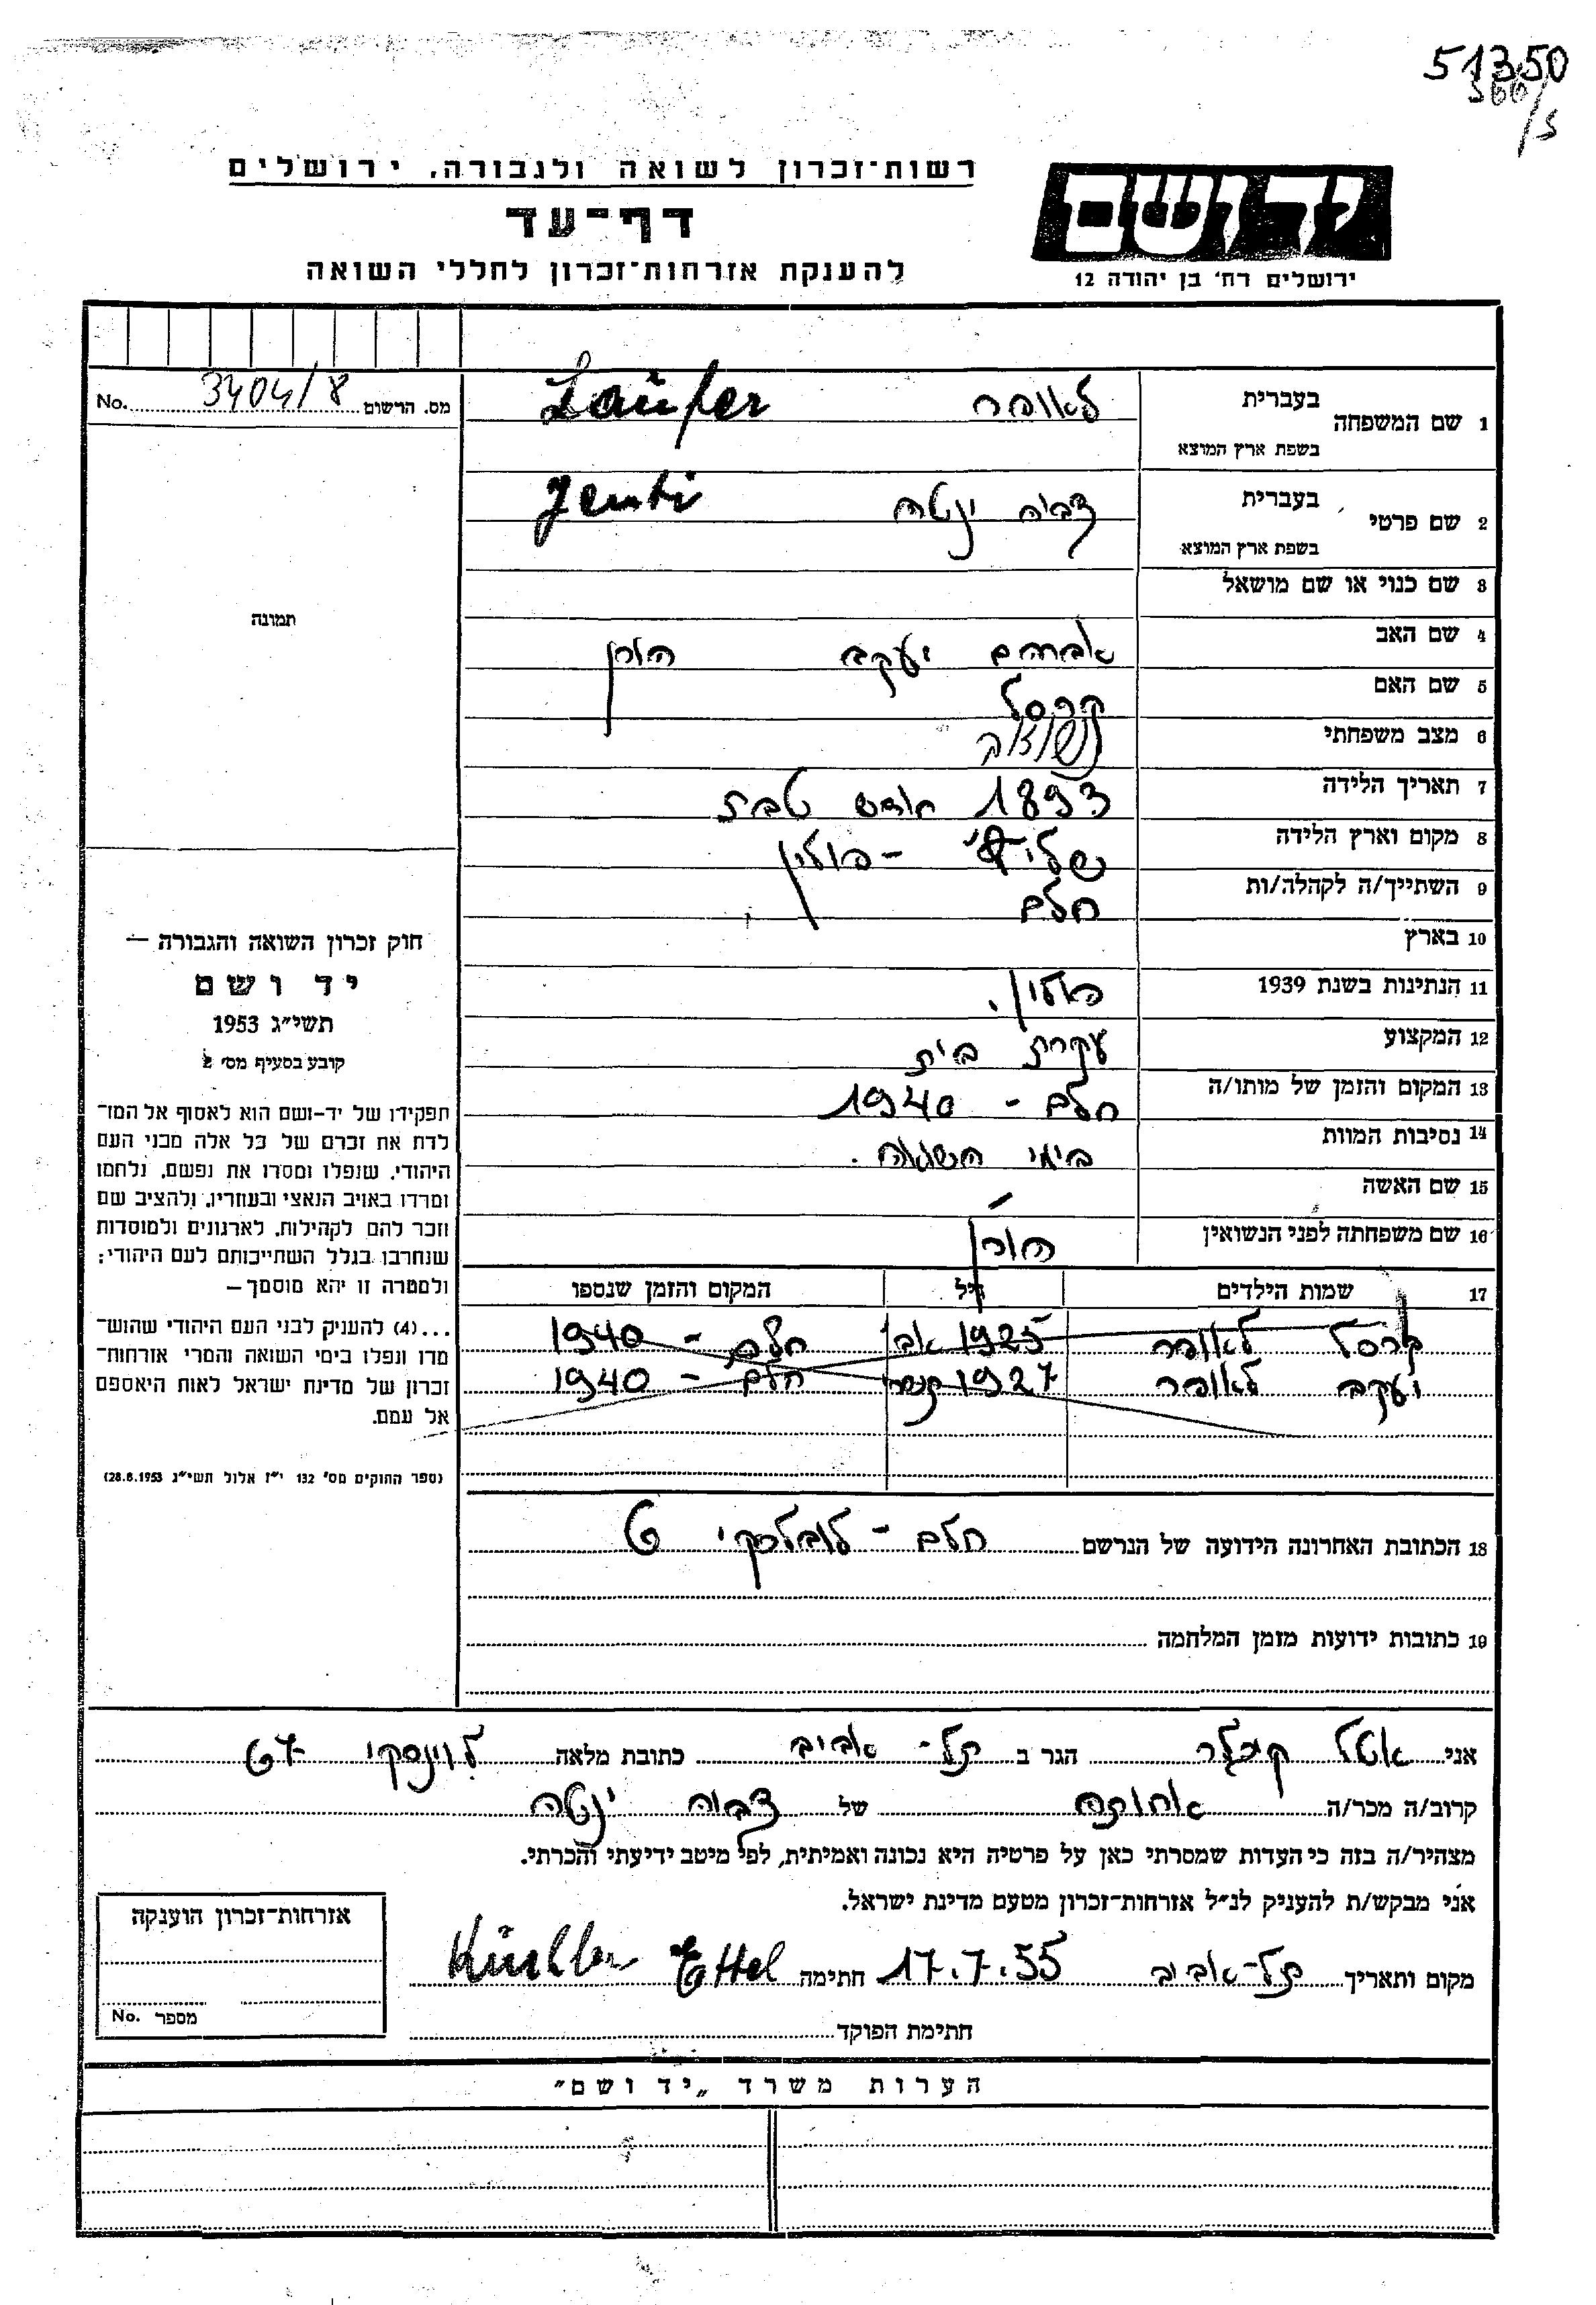 51350
566/5
רשות־זכרון לשואה ולגבורה. ירושלים
דף־עד
להענקת אזרחות־זכרון לחללי השואה
יד ושם
ירושלים רח' בן יהודה 12
מס. הרשום 3404/8 No.
תמונה
1 שם המשפחה
בעברית לאופר Laufer
בשפת ארץ המוצא
2 שם פרטי
בעברית דבורה ינטה Jenti
בשפת ארץ המוצא
3 שם כנוי או שם מושאל
4 שם האב אברהם יעקב הורן
5 שם האם קרסל
6 מצב משפחתי נשואה
7 תאריך הלידה 1893 חודש טבת
8 מקום וארץ הלידה פולין
9 השתייך/ה לקהלה/ות חלם
10 בארץ
11 הנתינות בשנת 1939 פולין.
12 המקצוע עקרת בית
13 המקום והזמן של מותו/ה חלם - 1940
14 נסיבות המוות בימי השואה.
15 שם האשה -
16 שם משפחתה לפני הנשואין הורן
17 שמות הילדים גיל המקום והזמן שנספו
קרסל לאופר 1925 אב חלם - 1940
יעקב לאופר 1927 תשרי חלם - 1940
18 הכתובת האחרונה הידועה של הנרשם חלם - לובלסקי 6
19 כתובות ידועות מזמן המלחמה
חוק זכרון השואה והגבורה —
יד ושם
תשי״ג 1953
קובע בסעיף מס׳ 2
תפקידו של יד-ושם הוא לאסוף אל המו־
לדת את זכרם של כל אלה מבני העם
היהודי, שנפלו ומסרו את נפשם, נלחמו
ומרדו באויב הנאצי ובעוזריו, ולהציב שם
וזכר להם לקהילות, לארגונים ולמוסדות
שנחרבו בגלל השתייכותם לעם היהודי;
ולמטרה זו יהא מוסמך —
...(4) להעניק לבני העם היהודי שהוש־
מדו ונפלו בימי השואה והמרי אזרחות־
זכרון של מדינת ישראל לאות היאספם
אל עמם.
(ספר החוקים מס׳ 132 י״ז אלול תשי״ג 28.8.1953)
אני אטל קיכלר הגר ב תל-אביב כתובת מלאה לוינסקי
קרוב/ה מכר/ה אחותה של דבורה ינטה
מצהיר/ה בזה כי העדות שמסרתי כאן על פרטיה היא נכונה ואמיתית, לפי מיטב ידיעתי והכרתי.
אני מבקש/ת להעניק לנ״ל אזרחות-זכרון מטעם מדינת ישראל.
מקום ותאריך תל-אביב 17.7.55 חתימה Küchler Ettel
חתימת הפוקד
אזרחות-זכרון הוענקה
מספר No.
הערות משרד „יד ושם״